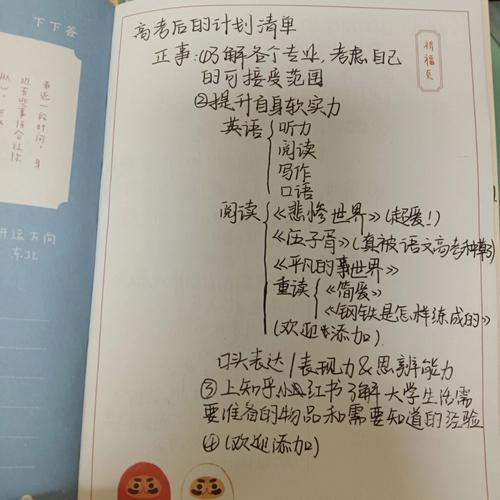 高考后的计划清单
正事:①了解各个专业,考虑自己
的可接受范围
②提升自身软实力
英语 听力
阅读
写作
口语
阅读 《悲惨世界》(超爱!)
《伍子胥》(真被语文高考种草)
《平凡的世界》
重读 《简爱》
《钢铁是怎样练成的》
(欢迎添加)
口头表达/表现力&思辨能力
③上知乎小红书了解大学生活需
要准备的物品和需要知道的经验
④(欢迎添加)
祈福页
下下答
最近一段时间,
近有些事
开运方向
东北